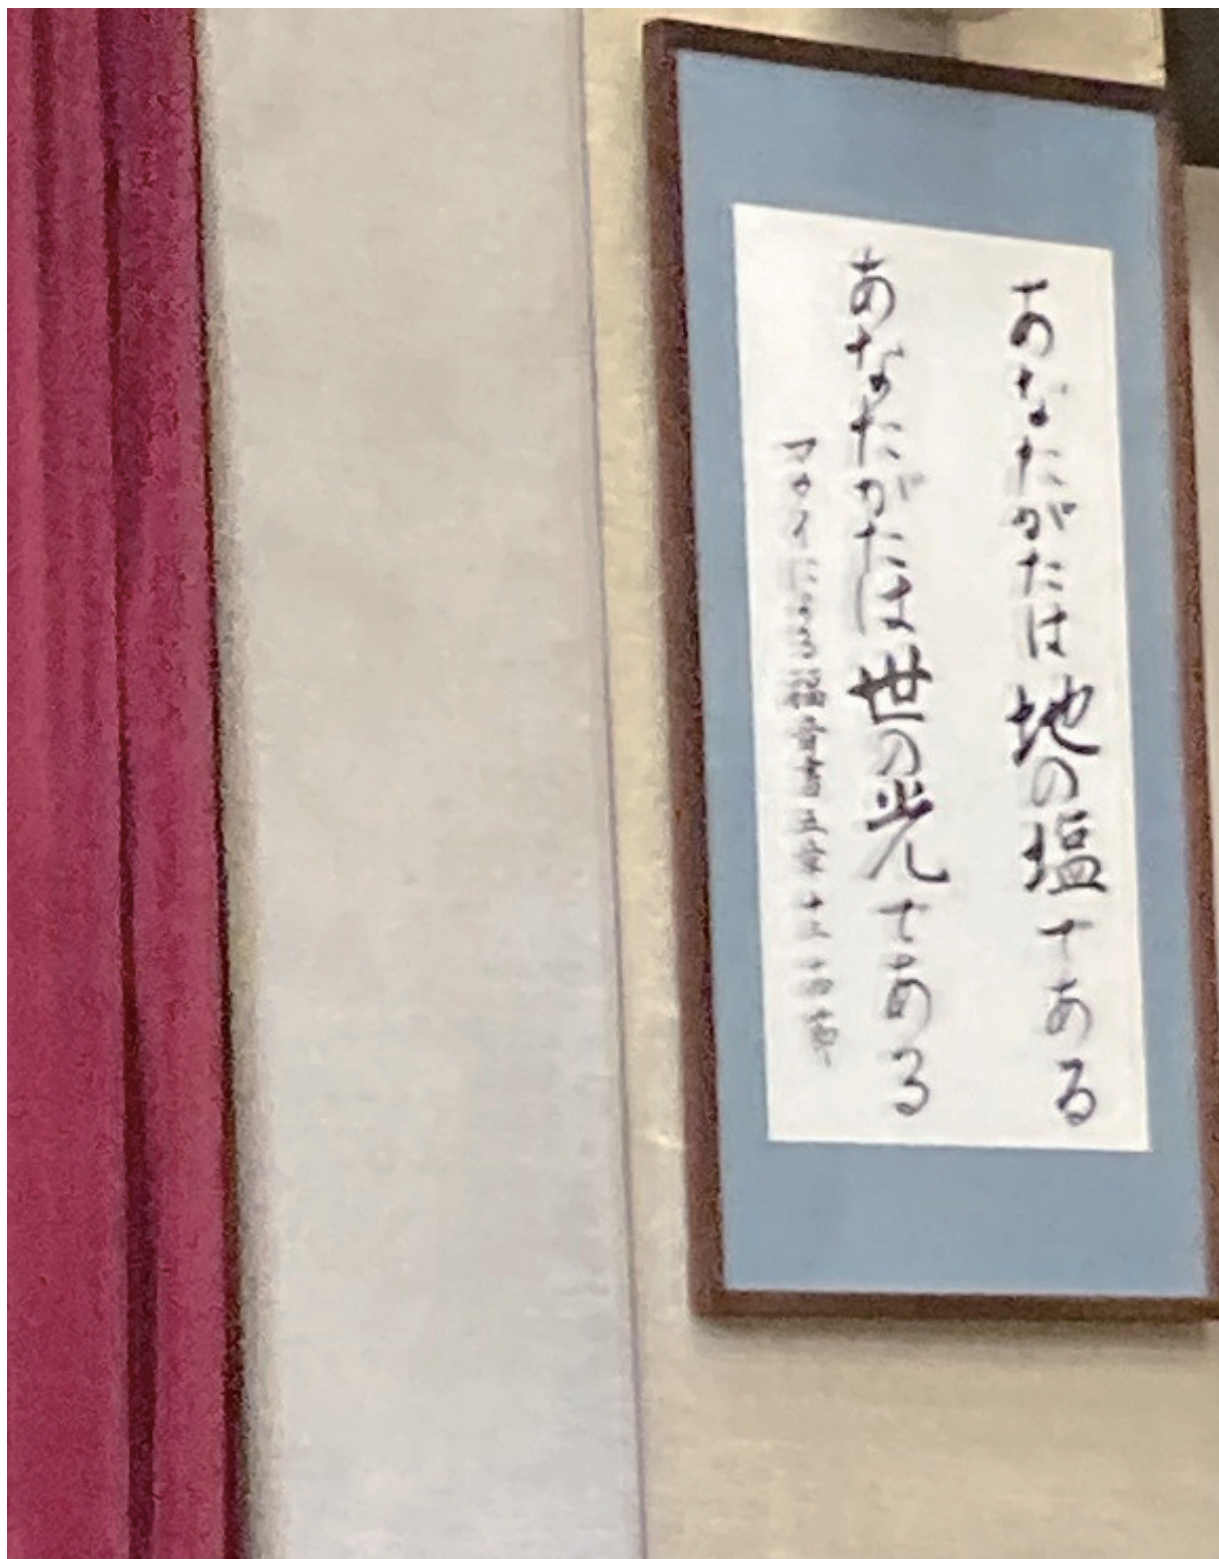 あなたがたは地の塩である
あなたがたは世の光である
マタイによる福音書五章十三 十四節